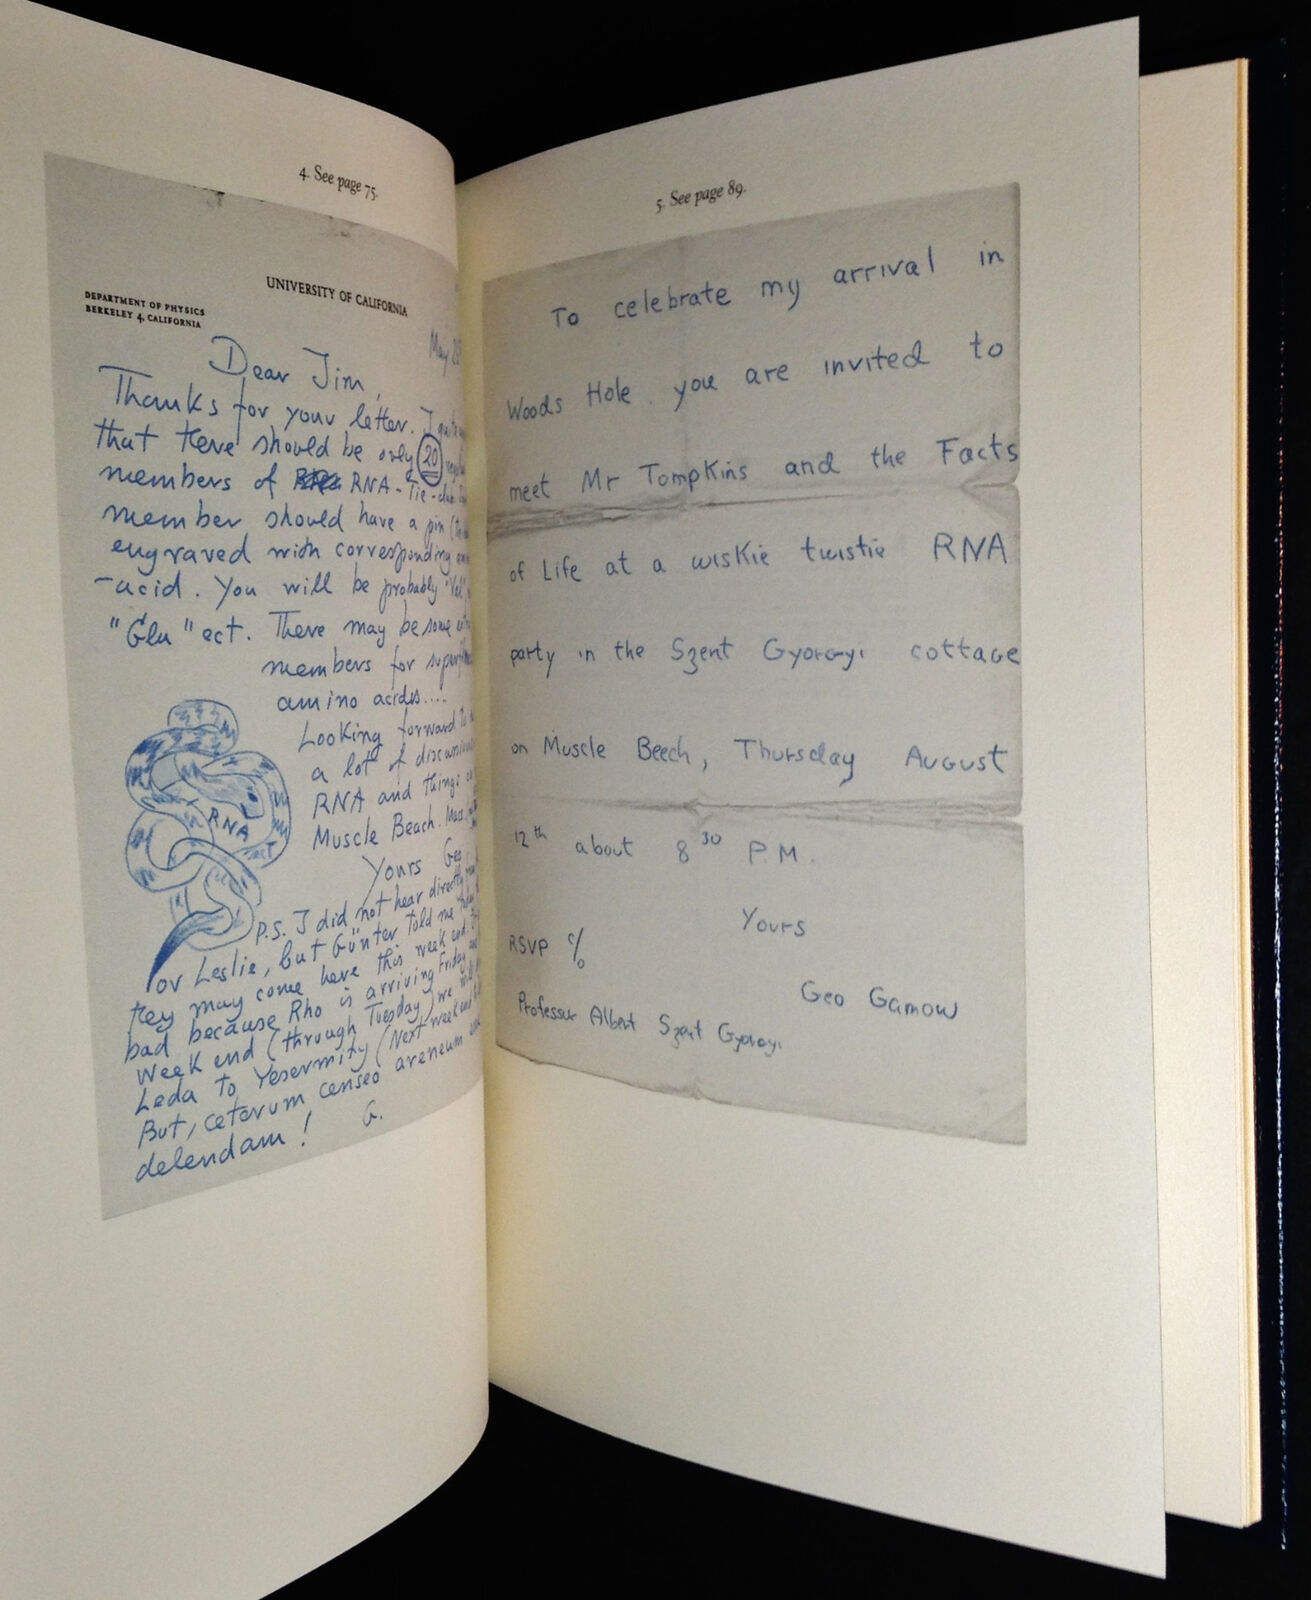 4. See page 75.
UNIVERSITY OF CALIFORNIA
DEPARTMENT OF PHYSICS
BERKELEY 4, CALIFORNIA
May
Dear Jim,
Thanks for your letter. I
that there should be only 20
members of RNA-Tie-club.
member should have a pin
engraved with corresponding
-acid. You will be probably "Val",
"Glu" ect. There may be some
members for
amino acids....
Looking forward to
a lot of
RNA and things
Muscle Beach. Mass.
Yours Geo
RNA
P.S. I did not hear directly
or Leslie, but Günter told me
they may come here this week end.
bad because Rho is arriving Friday
week end (through Tuesday) we will
Leda to Yosermity (Next week end
But, ceterum censeo areneum
delendam! G.
5. See page 89.
To celebrate my arrival in
Woods Hole you are invited to
meet Mr Tompkins and the Facts
of Life at a wiskie twistie RNA
party in the Szent Gyorgyi cottage
on Muscle Beech, Thursday August
12th about 8 30 P.M.
Yours
RSVP c/o
Geo Gamow
Professur Albert Szent Gyorgyi